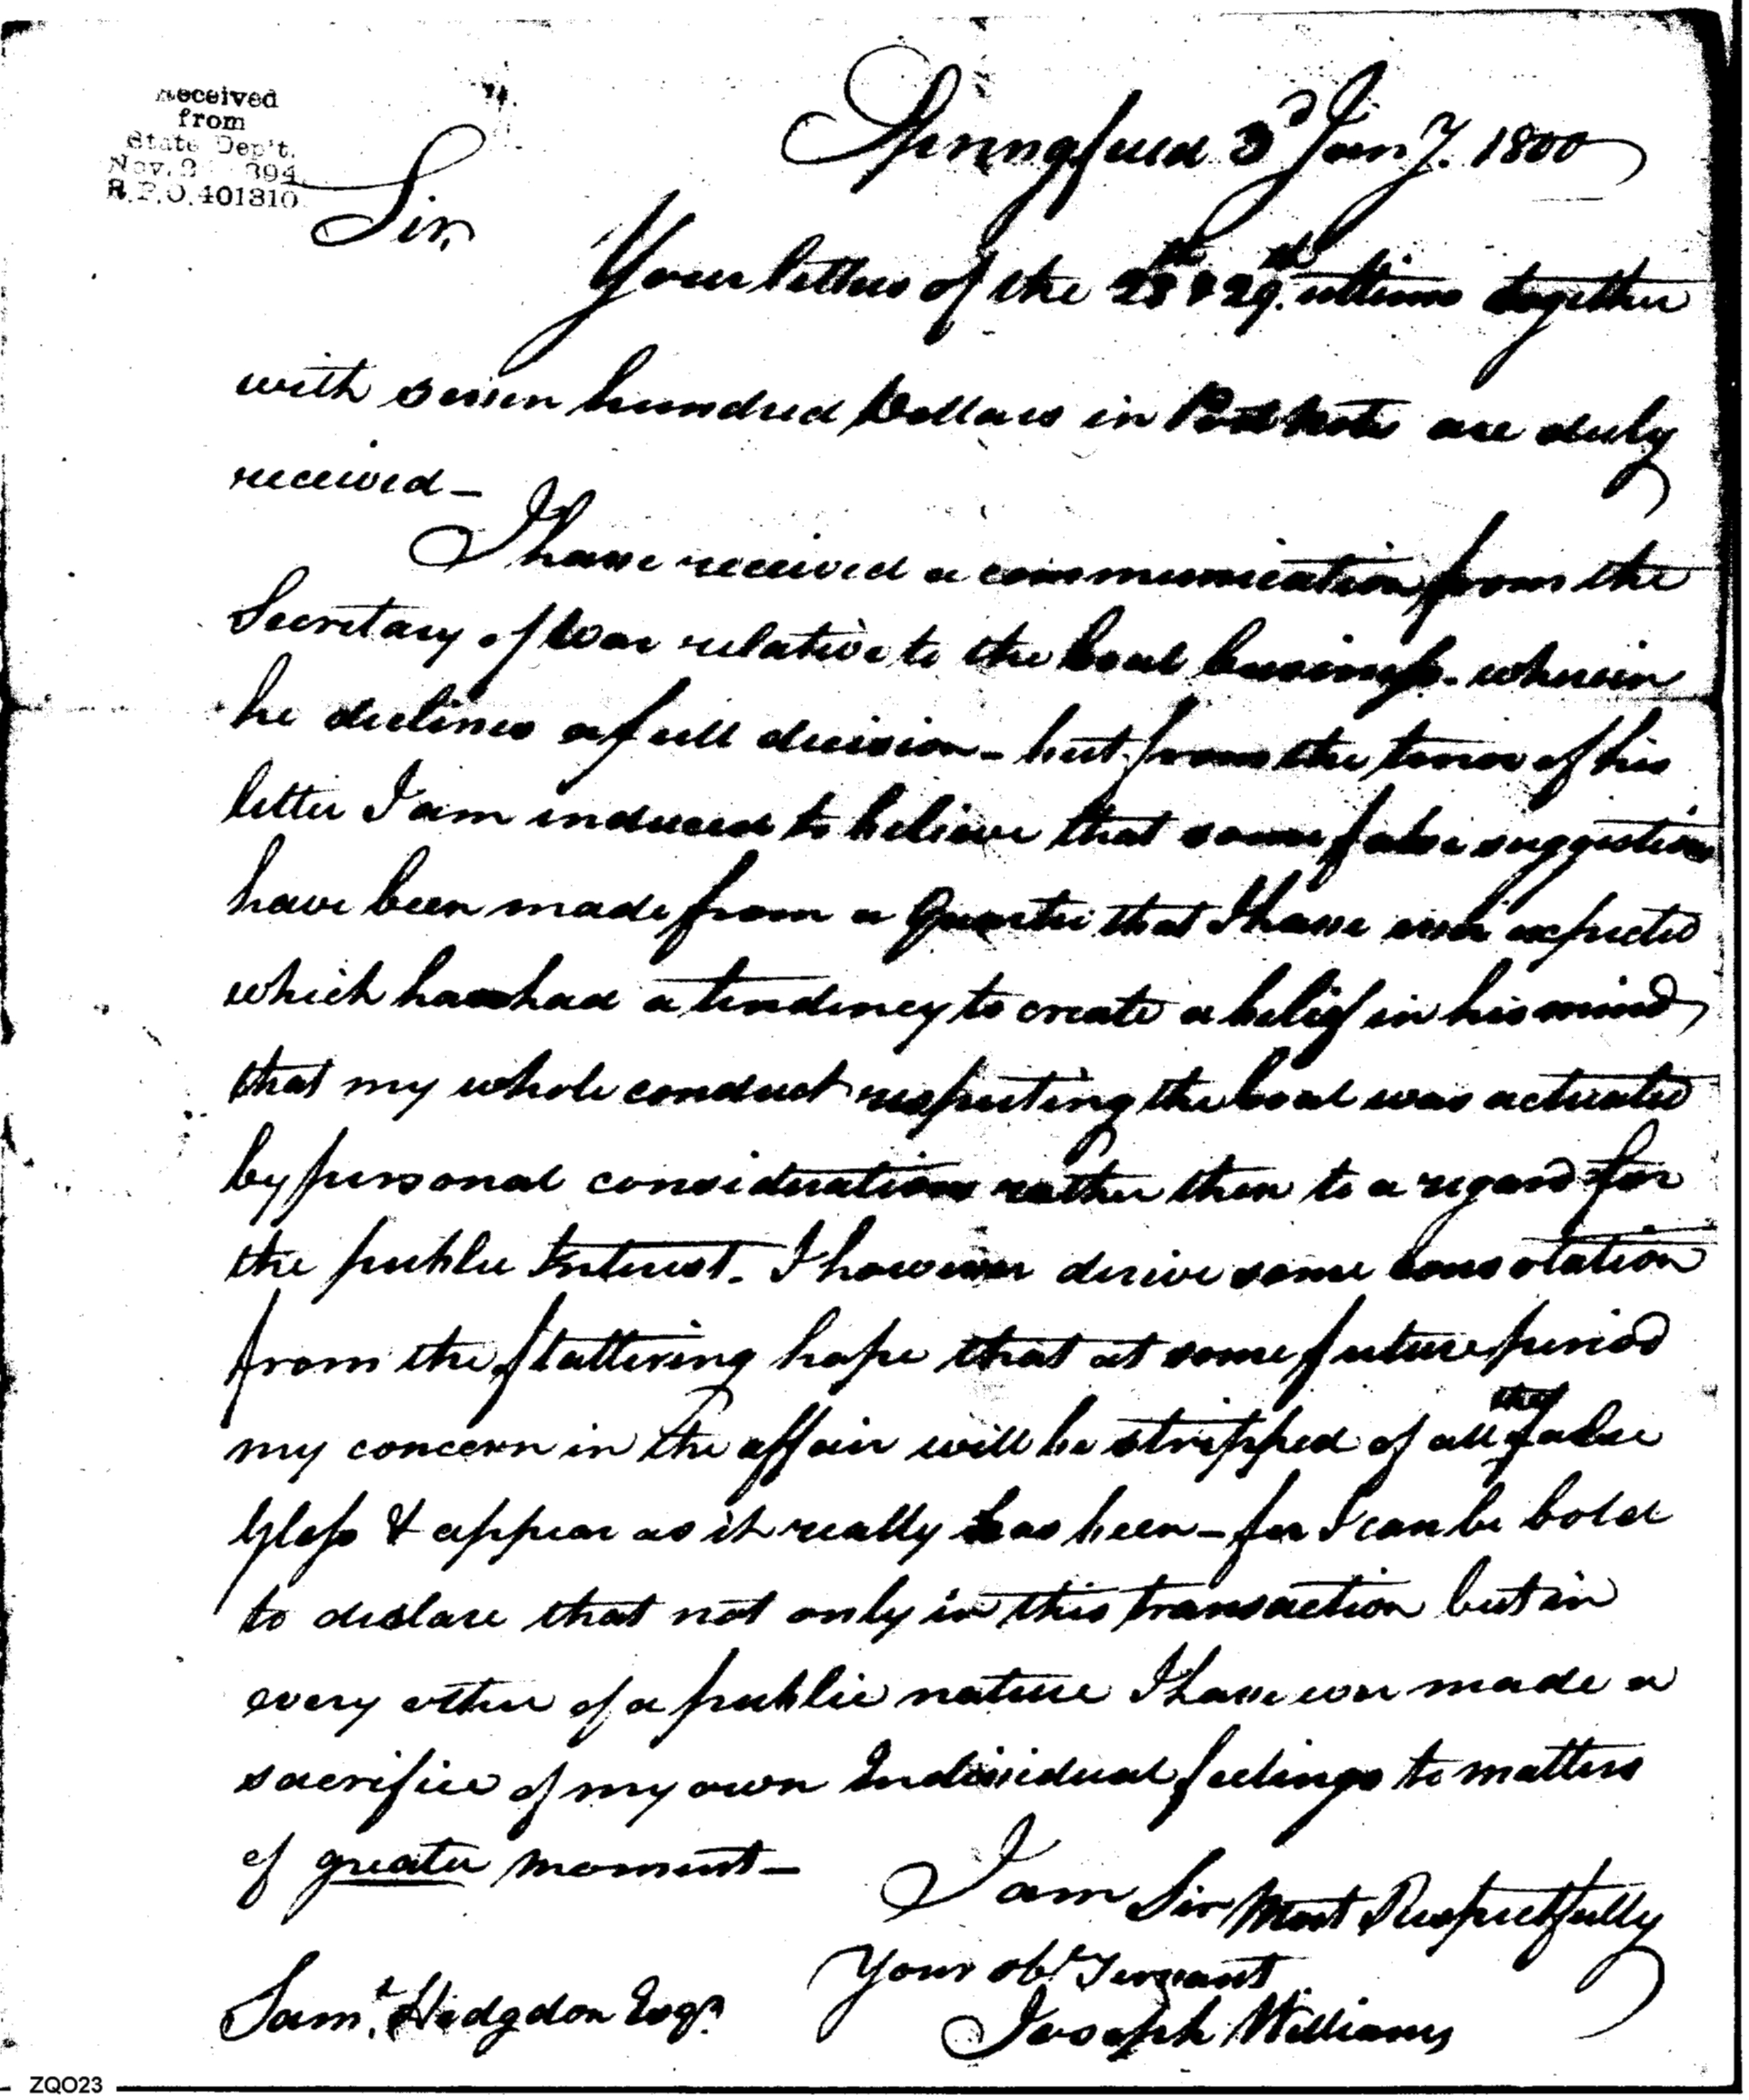 Received
from
State Dep't.
Nov. 394
R.P.O. 401310
Springfield 3d Jany. 1800
Sir,
Your letters of the 28th & 29th. ultimo together
with seven hundred Dollars in Post Note are duly
received—
I have received a communication from the
Secretary of War relative to the boat business. wherein
he declines a full decision - but from the tenor of his
letter I am induced to believe that some false suggestions
have been made from a Quarter that I have ever expected
which has had a tendency to create a belief in his mind
that my whole conduct respecting the boat was actuated
by personal considerations rather then to a regard for
the public Interest. I however derive some consolation
from the flattering hope that at some future period
my concern in the affair will be stripped of all the false
Gloss & appear as it really has been - for I can be bold
to declare that not only in this transaction but in
every other of a public nature I have ever made a
sacrifice of my own Individual feelings to matters
of greater moment—
I am Sir Most Respectfully
Your obt Servant
Joseph Williams
Saml. Hodgdon Esqr.
ZQO23